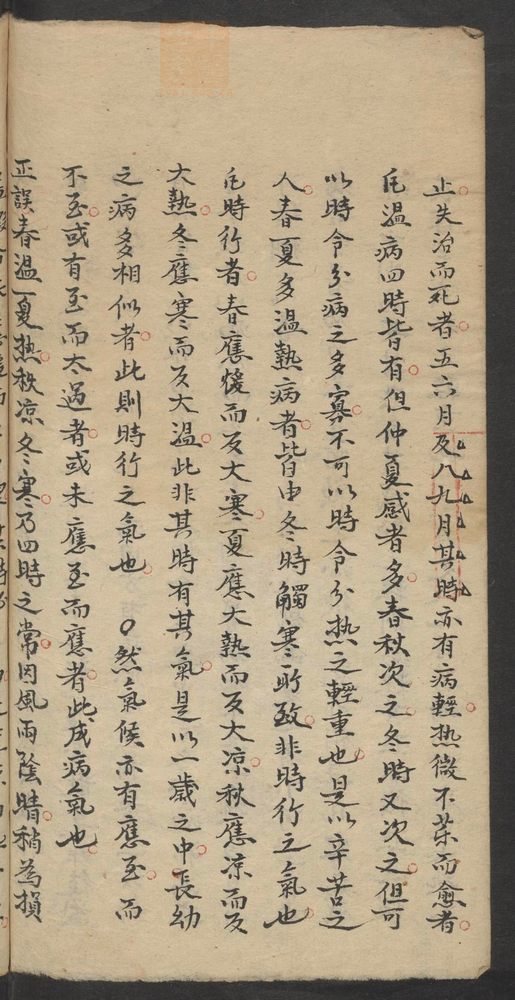 止失治而死者五六月及八九月其時亦有病輕热微不茱而愈者
凡温病四時皆有但仲夏感者多春秋次之冬時又次之但可
以時令分病之多寡不可以時令分热之輕重也是以辛苦之
人春夏多温熱病者皆由冬時觸寒所致非時行之氣也
凡時行者春應煖而反大寒夏應大熱而反大凉秋應凉而反
大熱冬應寒而反大温此非其時有其氣是以一歲之中長幼
之病多相似者此則時行之氣也 〇然氣候亦有應至而
不至或有至而太過者或未應至而應者此成病氣也
正誤春温夏热秋凉冬寒乃四時之常因風雨陰晴稍為損